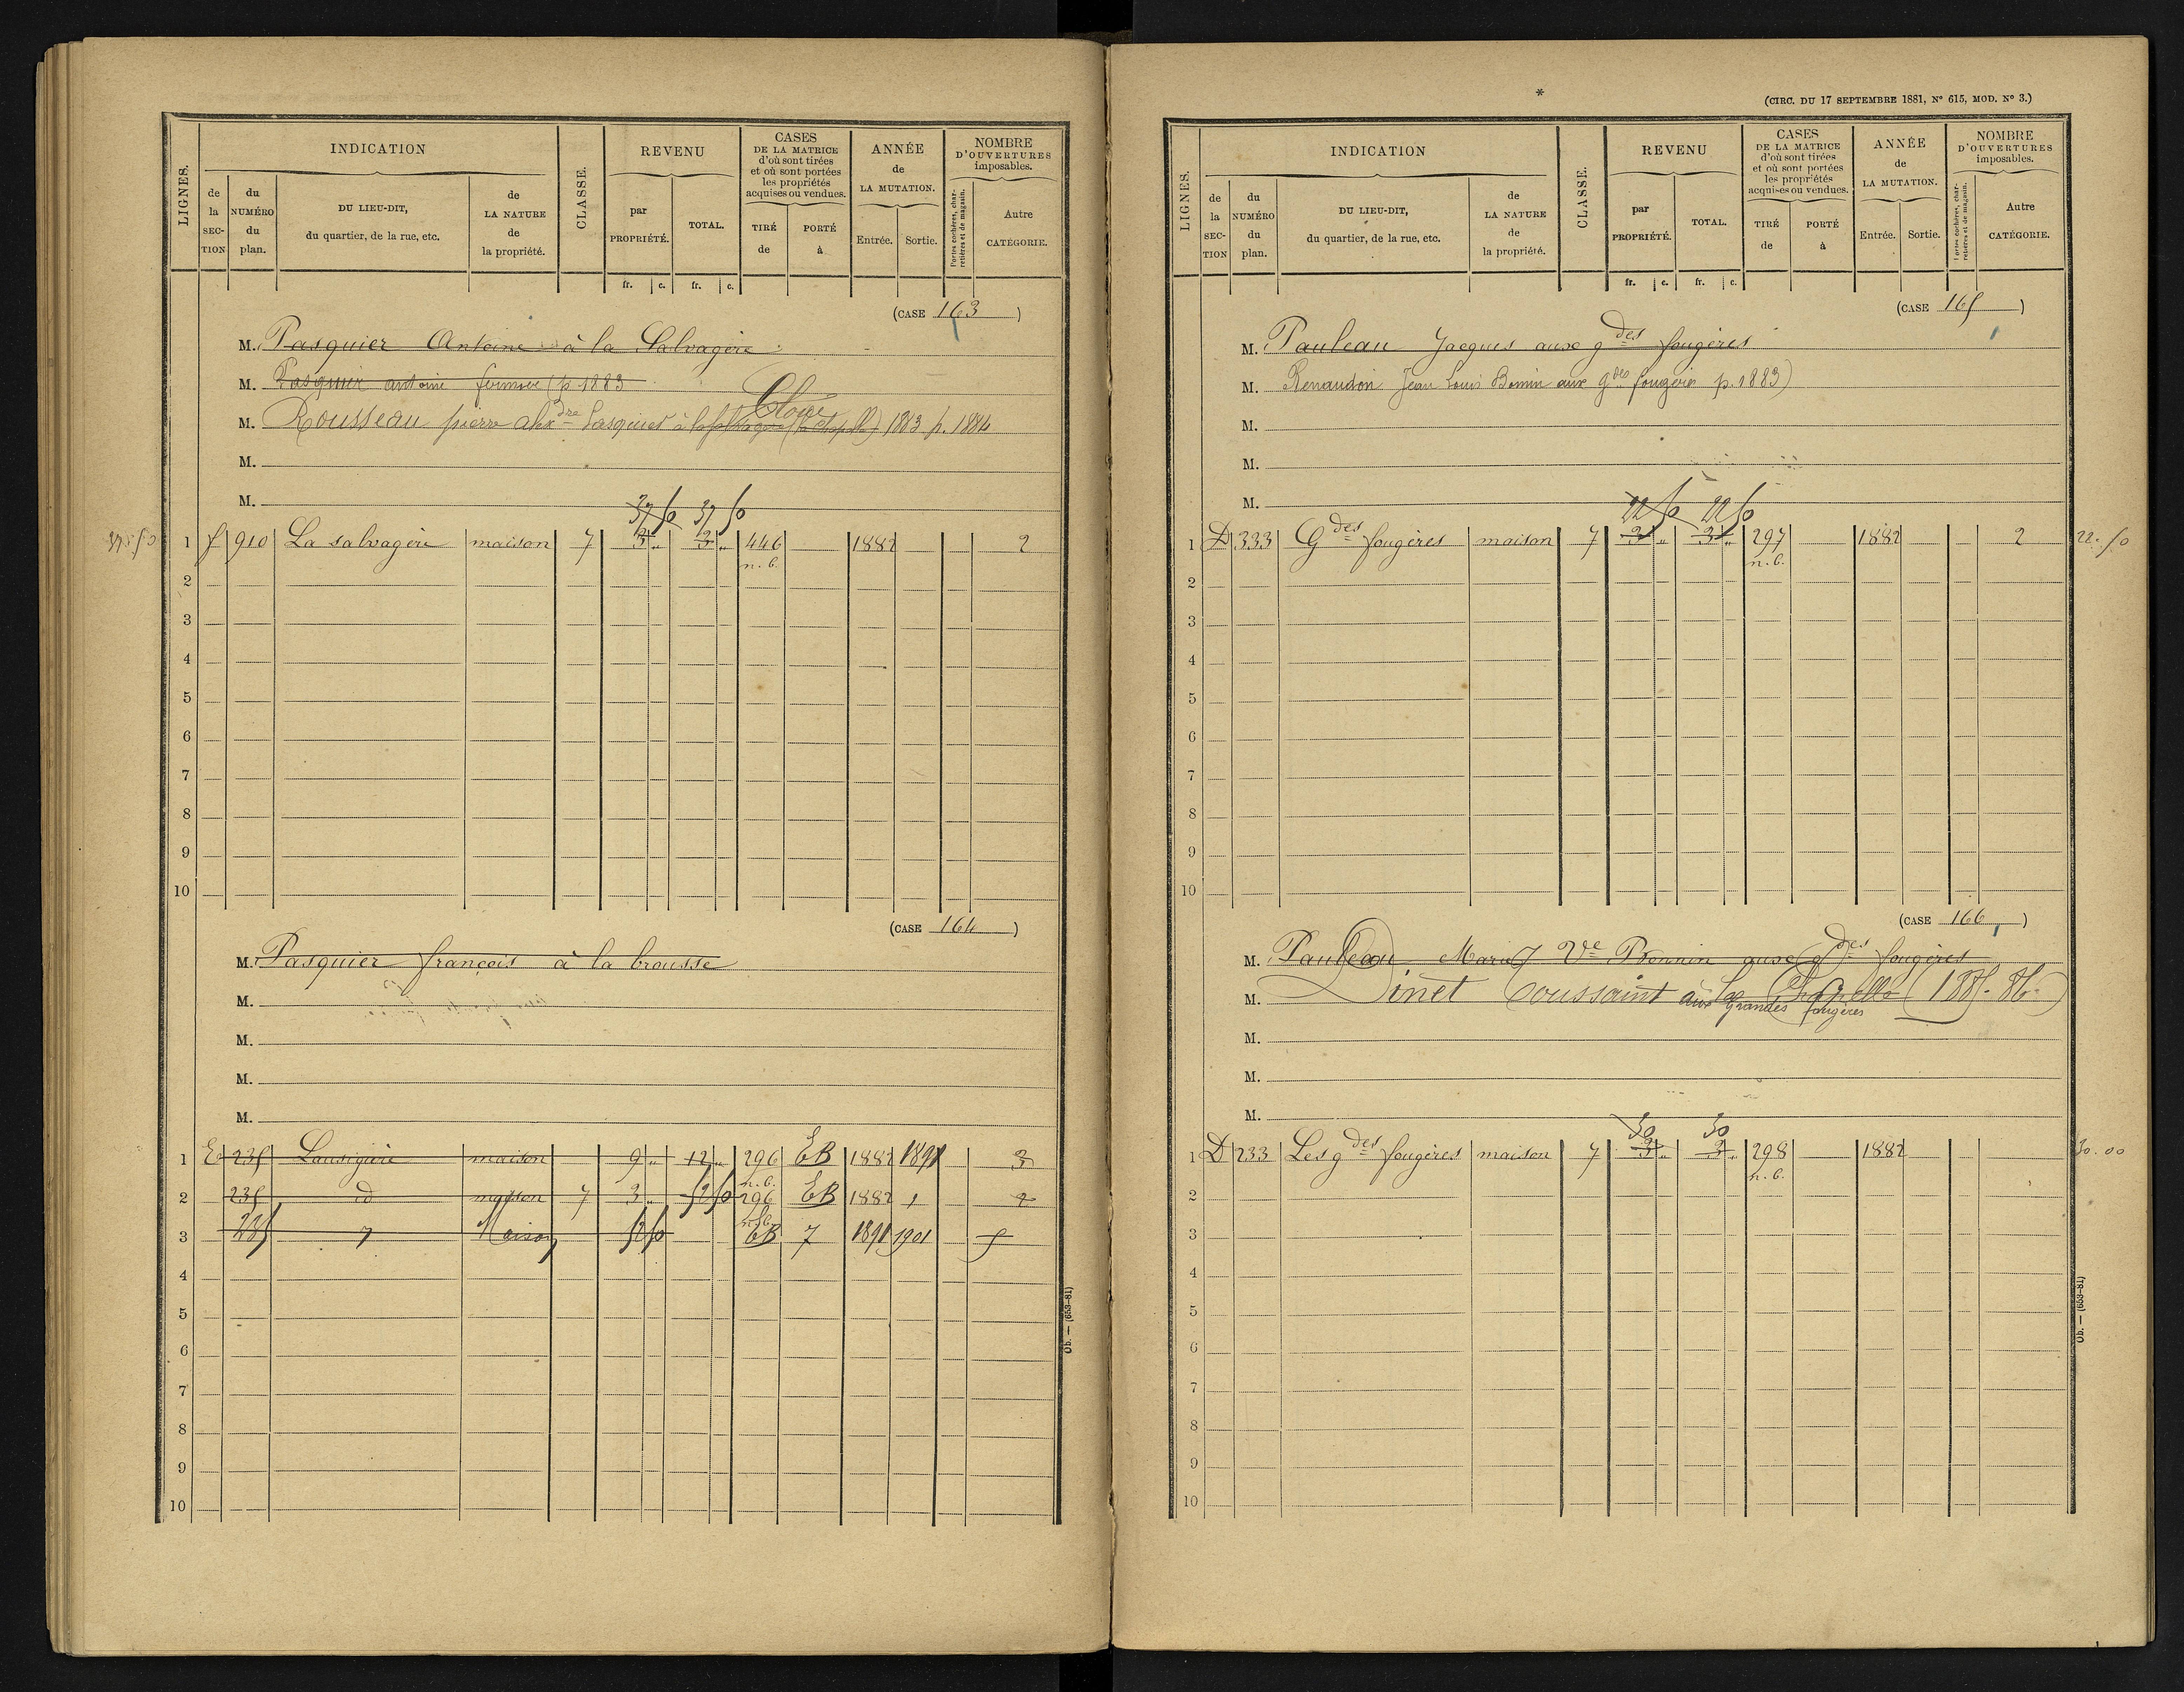 LIGNES.
INDICATION
de la SECTION
du NUMÉRO du plan.
DU LIEU-DIT, du quartier, de la rue, etc.
de LA NATURE de la propriété.
CLASSE.
REVENU
par PROPRIÉTÉ.
TOTAL.
fr. c. fr. c.
CASES DE LA MATRICE d'où sont tirées et où sont portées les propriétés acquises ou vendues.
TIRÉ de
PORTÉ à
ANNÉE de LA MUTATION.
Entrée. Sortie.
NOMBRE D'OUVERTURES imposables.
Portes cochères, charretières et de magasin.
Autre CATÉGORIE.
(CASE 163)
M. Pasquier Antoine à la Salvagère
M. Pasquier antoine fermier (p. 1883
M. Rousseau pierre alexdre Pasquier à la 1883 p. 1884
M.
M.
37 50 37 50
37.50 1 f 910 La salvagère maison 7 3 " 3 " 446 1882 2
n. b.
2
3
4
5
6
7
8
9
10
(CASE 164)
M. Pasquier françois à la brousse
M.
M.
M.
M.
1 E 235 maison 9 " 12 " 296 EB 1882 1891 3
n. b.
2 235 id maison 7 3 " 52 50 296 EB 1882 2
n. b.
3 235 Maison 52 50 EB 7 1891 1901 5
4
5
6
7
8
9
10
Ob. — (653-81)
*
(CIRC. DU 17 SEPTEMBRE 1881, N° 615, MOD. N° 3.)
LIGNES.
INDICATION
de la SECTION
du NUMÉRO du plan.
DU LIEU-DIT, du quartier, de la rue, etc.
de LA NATURE de la propriété.
CLASSE.
REVENU
par PROPRIÉTÉ.
TOTAL.
fr. c. fr. c.
CASES DE LA MATRICE d'où sont tirées et où sont portées les propriétés acquises ou vendues.
TIRÉ de
PORTÉ à
ANNÉE de LA MUTATION.
Entrée. Sortie.
NOMBRE D'OUVERTURES imposables.
Portes cochères, charretières et de magasin.
Autre CATÉGORIE.
(CASE 165)
M. Pauleau Jacques aux gdes fougères
M. Renaudon Jean Louis Bonnin aux gdes fougères p. 1883)
M.
M.
M.
22 50 22 50
1 D 333 Gdes fougères maison 7 3 " 3 " 297 1882 2 22.50
n. b.
2
3
4
5
6
7
8
9
10
(CASE 166)
M. Pauleau Marie Ve Bonnin aux gdes fougères
M. Dinet Toussaint à la Chapelle (1885-86)
aux Grandes fougères
M.
M.
M.
30 30
1 D 233 Les gdes fougères maison 7 3 " 3 " 298 1882 30.00
n. b.
2
3
4
5
6
7
8
9
10
Ob. — (653-81)